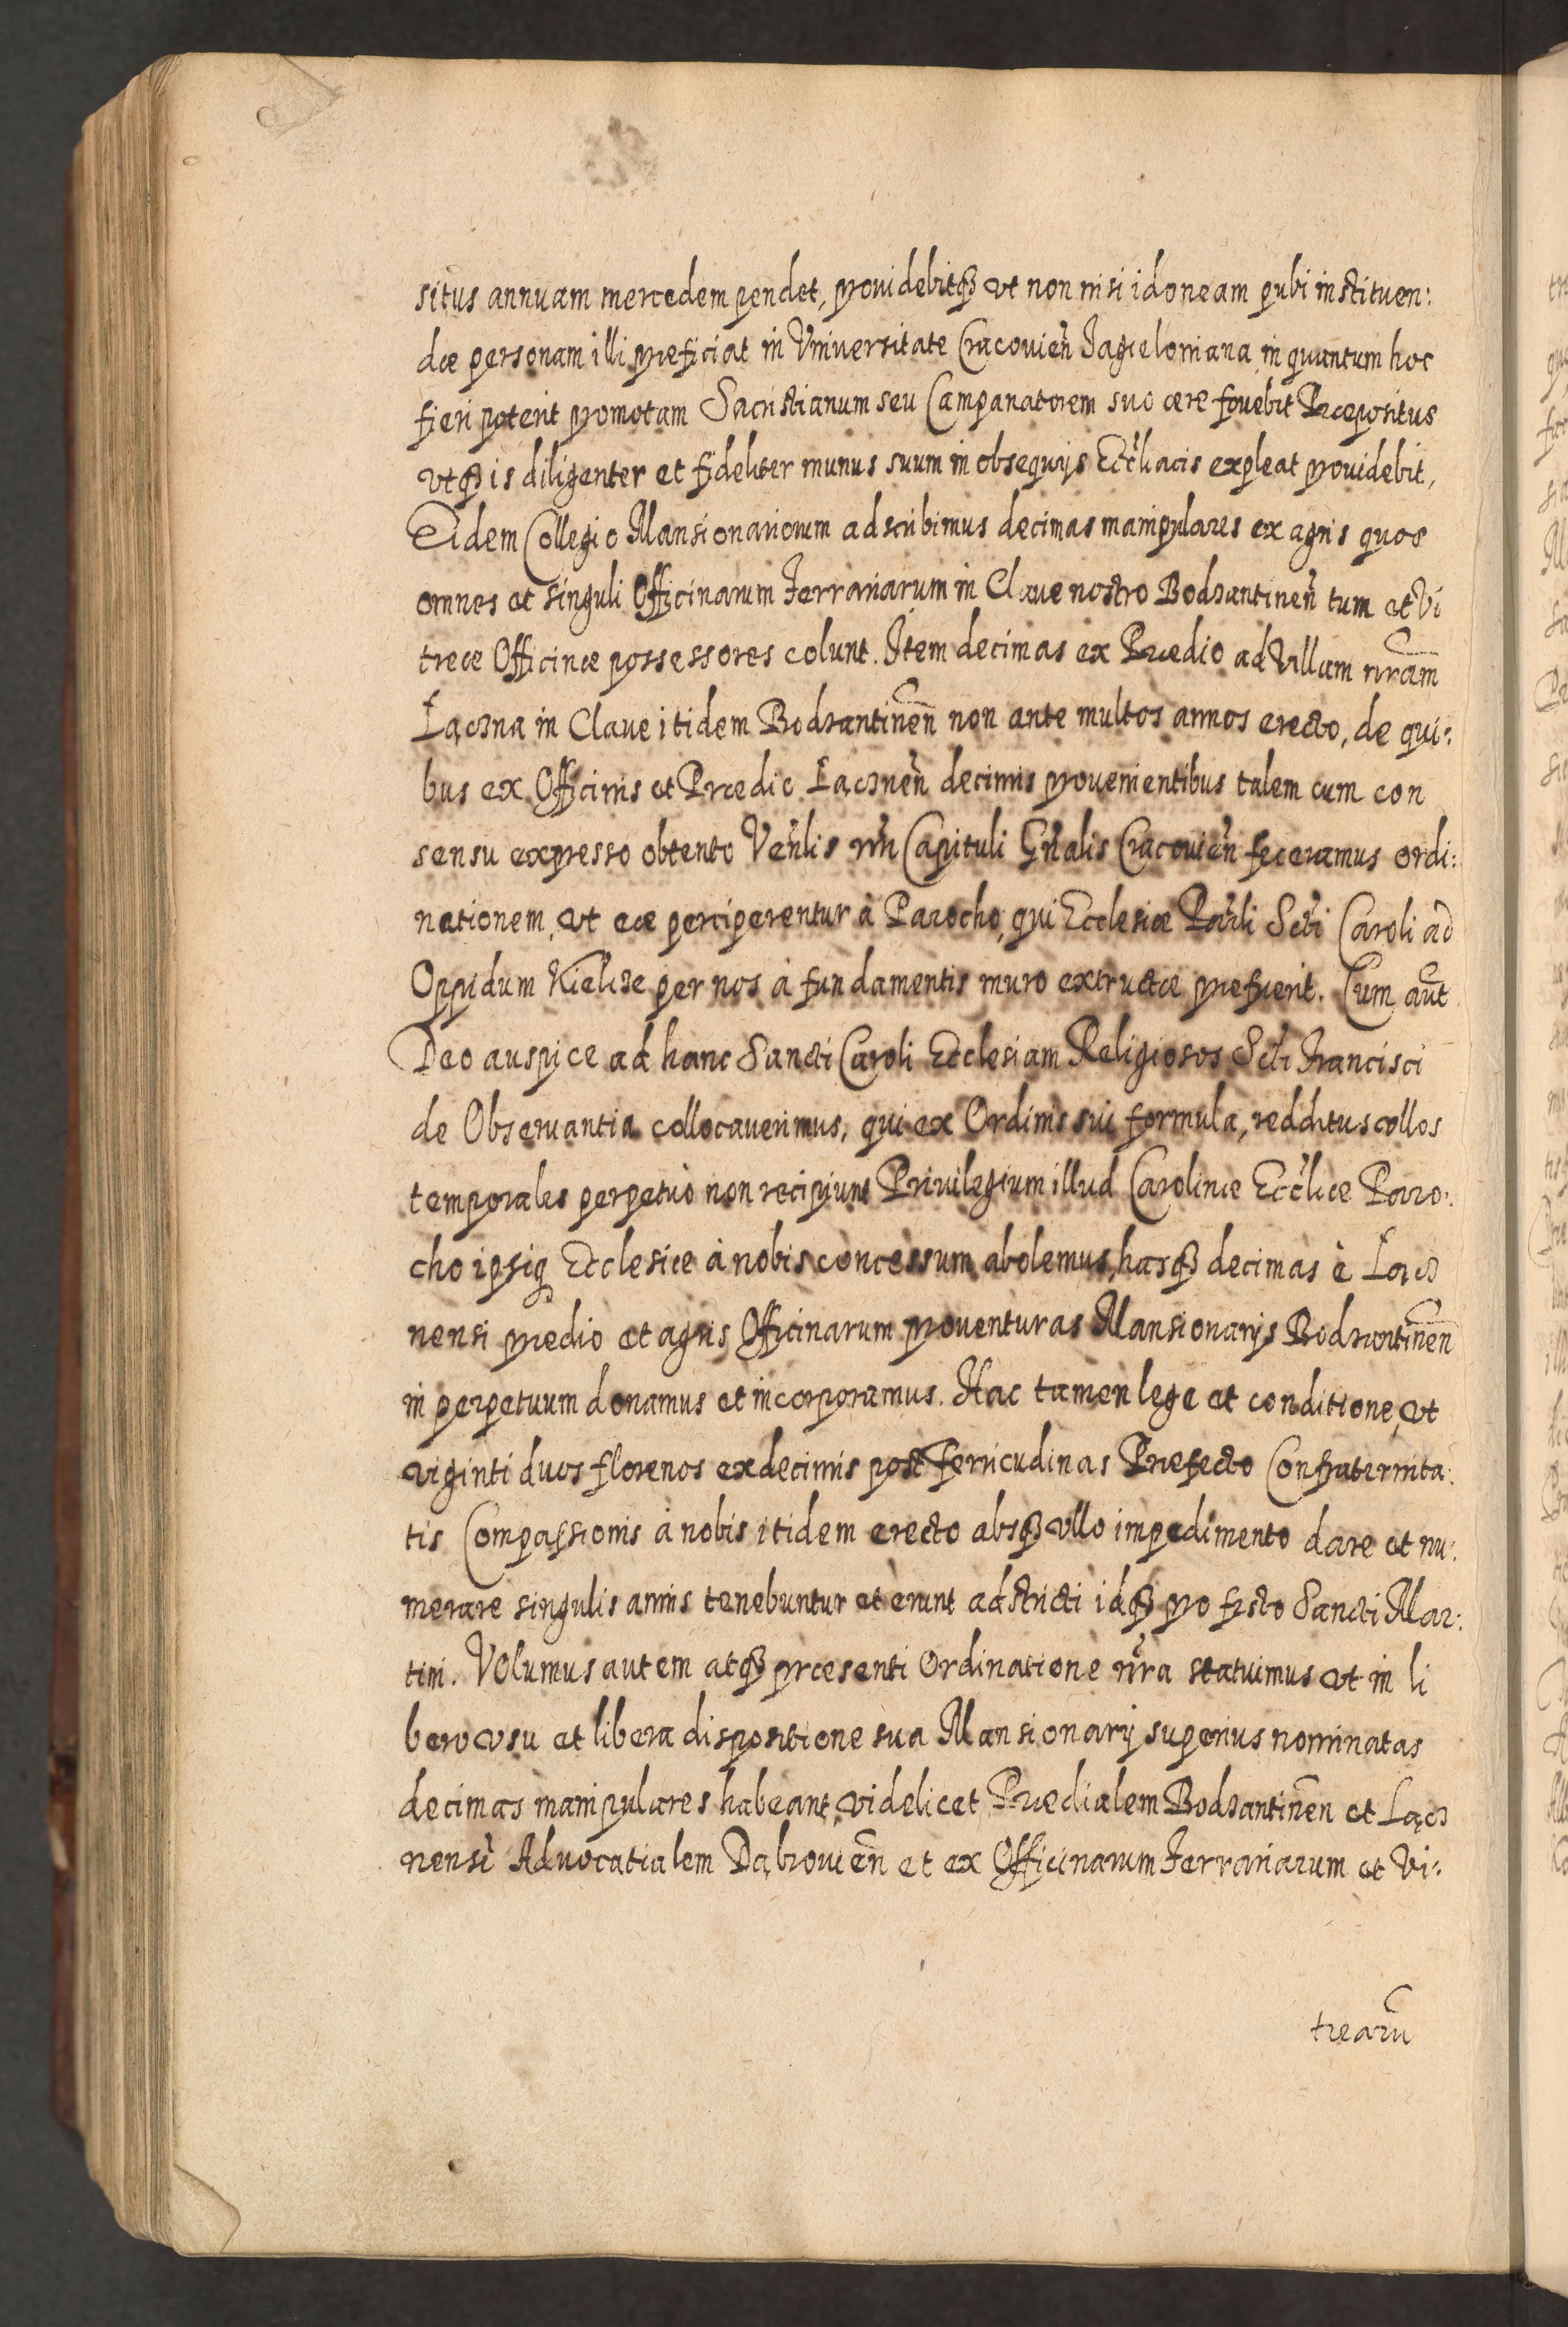 situs annuam mercedem pendet, prouidebitqꝫ vt non nisi idoneam pubi instituen:
dæ personam illi præficiat in Vniversitate Cracouien̄ Jagieloniana in quantum hoc
fieri poterit promotam Sacristianum seu Campanatorem suo ære fouebit Præpositus
vtqꝫ is diligenter et fideliter munus suum in obsequijs Eccl̄iacis expleat prouidebit,
Eidem Collegio Mansionariorum adscribimus decimas manipulares ex agris quos
omnes et singuli Officinarum Ferrariarum in Claue nostro Bodzantinen̄ tum et Vi
treæ Officinæ possessores colunt. Item decimas ex Prædio ad Villam nr̄am
Łączna in Claue itidem Bodzantinen̄ non ante multos annos erecto, de qui:
bus ex Officinis et Prædio Łącznen̄ decimis prouenientibus talem cum con
sensu expresso obtento Ven̄lis nr̄i Capituli Gn̄alis Cracouien̄ feceramus ordi:
nationem, vt eæ perciperentur à Parocho, qui Ecclesiæ Par̄li Scti Caroli ad
Oppidum Kielcze per nos à fundamentis muro extructæ præfuerit. Cum aut̄
Deo auspice ad hanc Sancti Caroli Ecclesiam Religiosos Scti Francisci
de Obseruantia collocauerimus, qui ex Ordinis sui formula, redditus collos
temporales perpetuò non recipiunt Privilegium illud Carolinæ Eccl̄iæ Paro:
cho ipsiq Ecclesiæ à nobis concessum abolemus, hasqꝫ decimas è Łącz
nensi prædio et agris Officinarum prouenturas Mansionarijs Bodzantinen̄
in perpetuum donamus et incorporamus. Hac tamen lege et conditione, vt
viginti duos florenos ex decimis post Ferricudinas Præfecto Confraternita:
tis Compassionis à nobis itidem erecto absqꝫ vllo impedimento dare et nu:
merare singulis annis tenebuntur et erunt adstricti idqꝫ pro festo Sancti Mar:
tini. Volumus autem atqꝫ præsenti Ordinatione nr̄a statuimus vt in li
bero vsu et libera dispositione sua Mansionarij superius nominatas
decimas manipulares habeant, videlicet Prædialem Bodzantinen̄ et Łącz
nensi Advocatialem Dąbrouien̄ et ex Officinarum Ferrariarum et Vi:
trearū